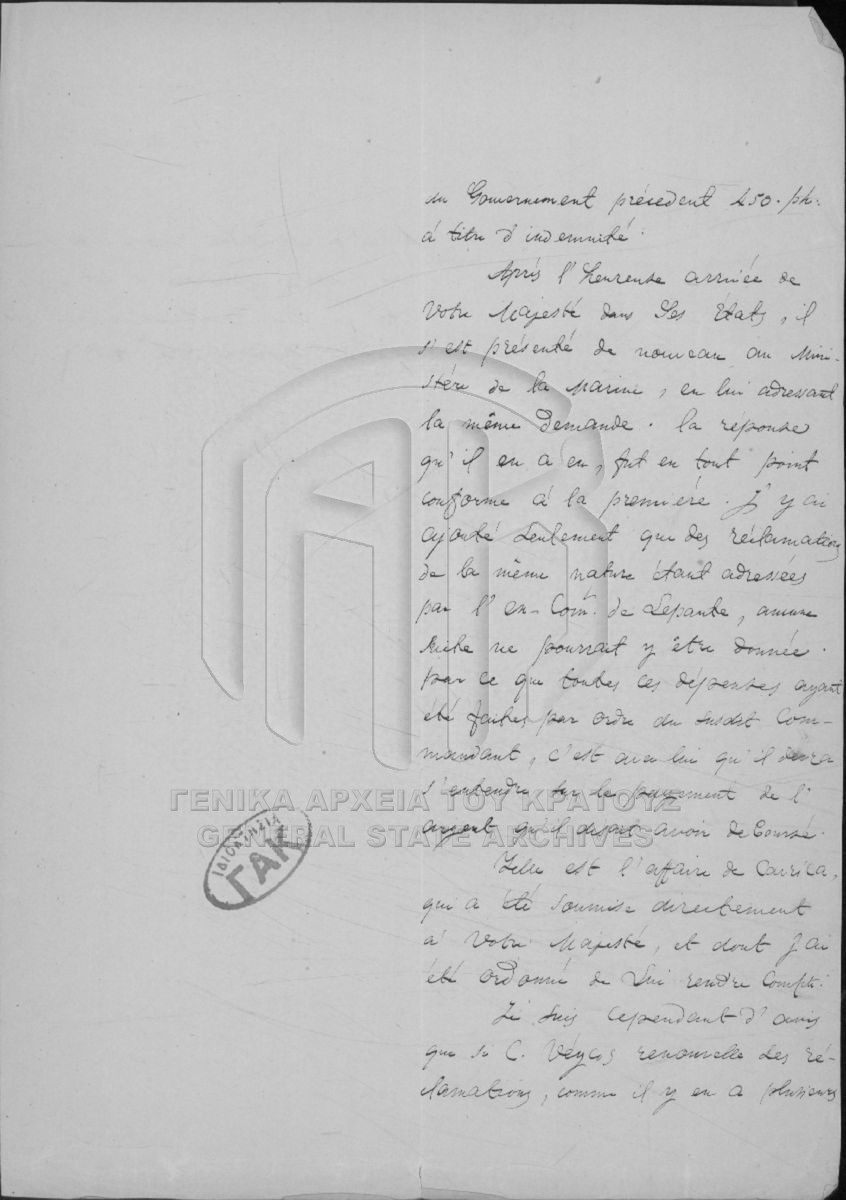 du Gouvernement précedent 450. ph:
á titre d'indemnité.
Après l'heureuse arrivée de
Votre Majesté dans Ses États, il
s'est présenté de nouveau au Mini-
stère de la Marine, en lui adressant
la même demande. la réponse
qu'il en a eu, fut en tout point
conforme á la première. J'y ai
ajouté seulement que des réclamations
de la même nature étant adressées
par l'en- Com. de Lepante, aucune
suite ne pourrait y être donnée.
par ce que toutes ces dépenses ayant
été faites par ordre du susdit Com-
mandant, c'est avec lui qu'il devra
s'entendre sur le payement de l'
argent qu'il disait avoir deboursé.
Telle est l'affaire de
qui a été soumise directement
à Votre Majesté, et dont j'ai
été ordonné de Lui rendre Compte.
Je suis cependant d'avis
que si C. renouvelle des ré-
clamations, comme il y en a plusieurs
ΓΕΝΙΚΑ ΑΡΧΕΙΑ ΤΟΥ ΚΡΑΤΟΥΣ
GENERAL STATE ARCHIVES
ΙΔΙΟΚΤΗΣΙΑ
ΓΑΚ